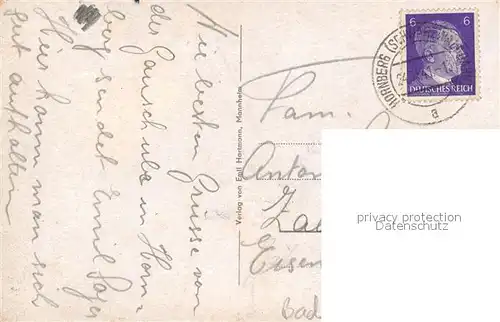 Die besten Grüsse von
der Gauschule in Horn=
berg sendet Emil
Hier kann man sich
gut aufhalten
Verlag von Emil Hartmann, Mannheim
HORNBERG (SCHWARZWALDBAHN)
a
6 6
DEUTSCHES REICH
Fam.
Anton
Eisen
Bad
privacy protection
Datenschutz